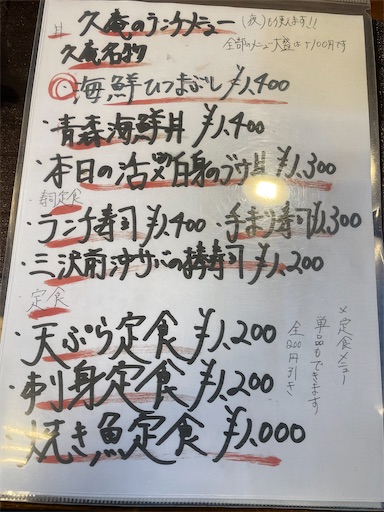 丼 久庵のランチメニュー (夜)も使えます!!
久庵名物 全部のメニュー大盛は+100円です
海鮮ひつまぶし ¥1,400
・青森海鮮丼 ¥1,400
・本日の活〆白身のづけ丼 ¥1,300
寿司定食
・ランチ寿司 ¥1,400 ・手まり寿司 ¥1,300
・三沢前沖サバの棒寿司 ¥1,200
定食
・天ぷら定食 ¥1,200
・刺身定食 ¥1,200
・焼き魚定食 ¥1,000
×定食メニュー
単品もできます
全200円引き